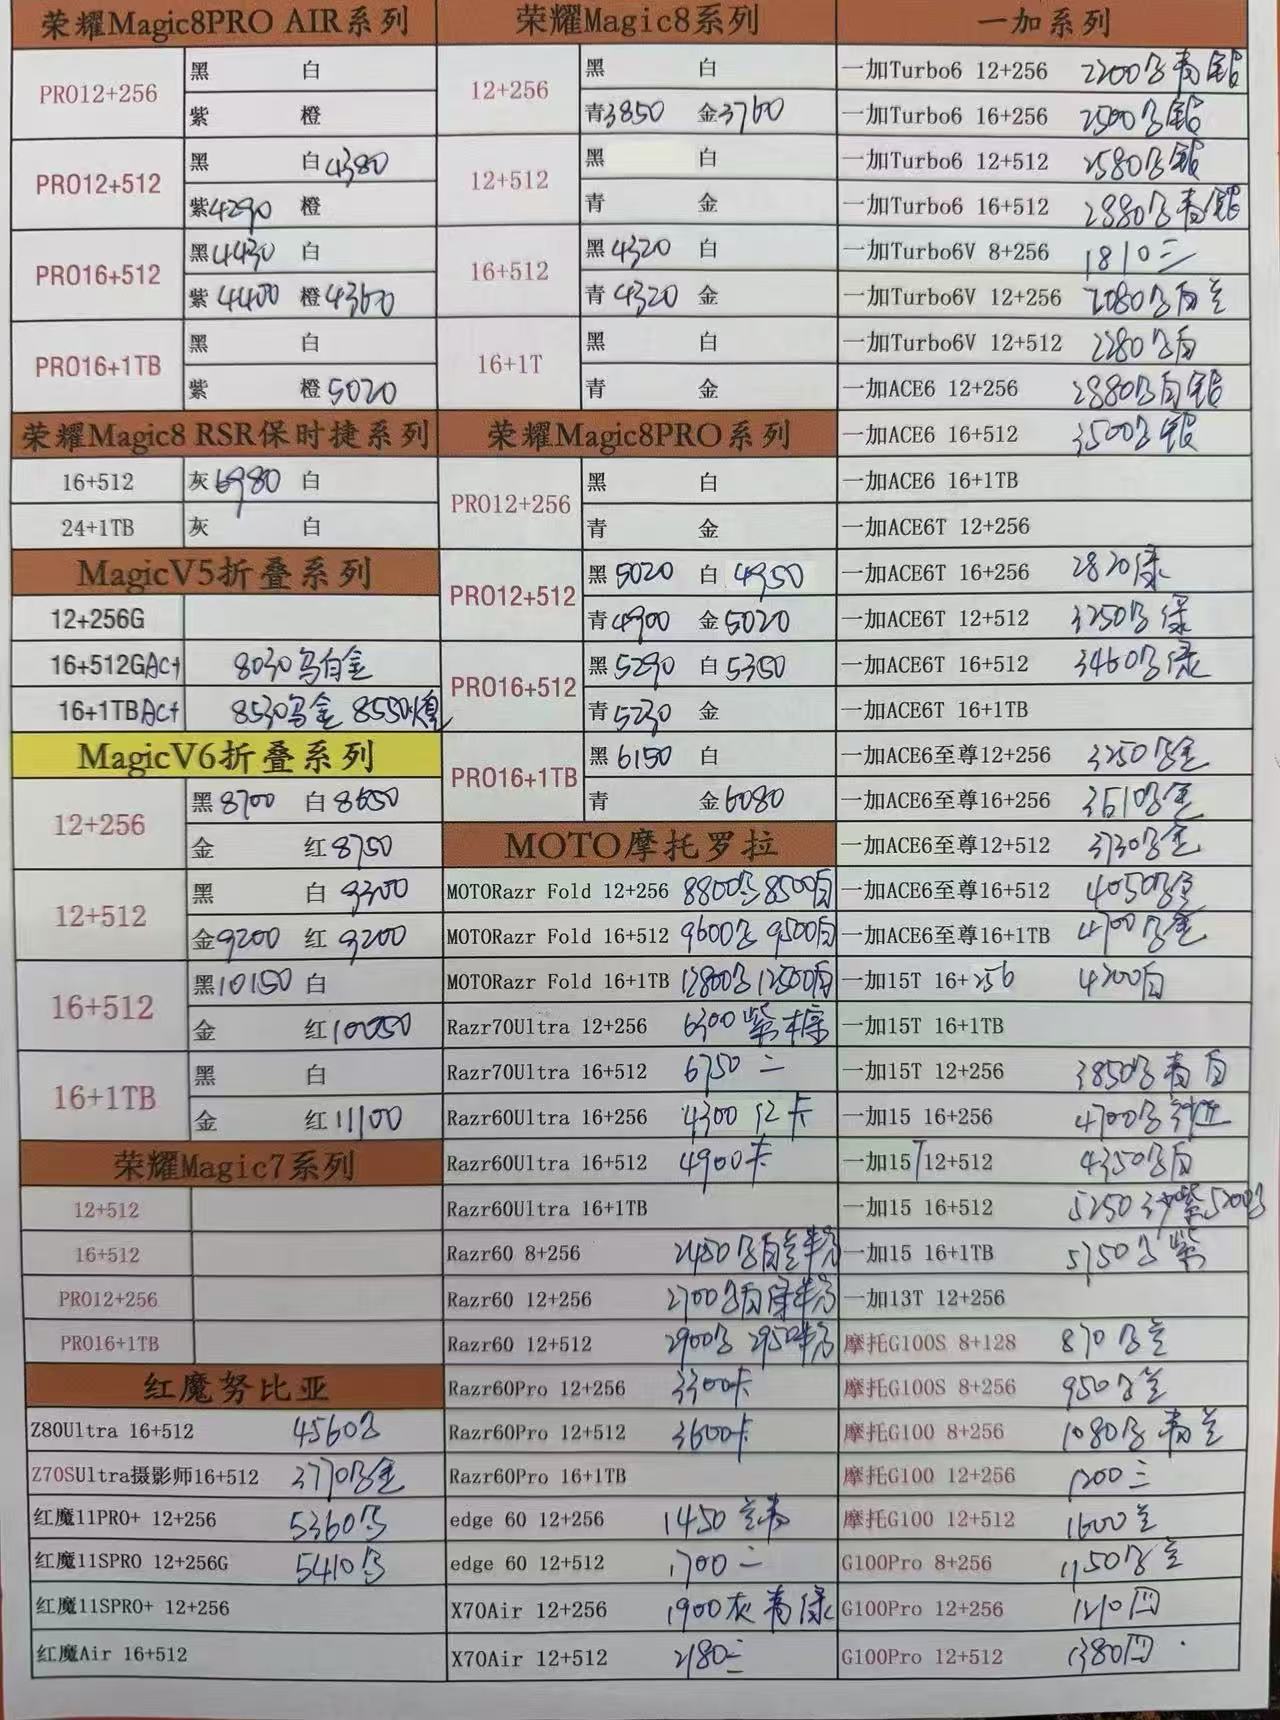 荣耀Magic8PRO AIR系列
PRO12+256 黑 白
紫 橙
PRO12+512 黑 白4380
紫4290 橙
PRO16+512 黑4430 白
紫4400 橙4360
PRO16+1TB 黑 白
紫 橙5020
荣耀Magic8 RSR保时捷系列
16+512 灰6980 白
24+1TB 灰 白
MagicV5折叠系列
12+256G
16+512GAct 8030 白金
16+1TBAct 8530 金 8550
MagicV6折叠系列
12+256 黑8700 白8650
金 红8750
12+512 黑 白9300
金9200 红9200
16+512 黑10150 白
金 红10050
16+1TB 黑 白
金 红11100
荣耀Magic7系列
12+512
16+512
PRO12+256
PRO16+1TB
红魔努比亚
Z80Ultra 16+512 4560
Z70SUltra摄影师16+512 3770 金
红魔11PRO+ 12+256 5360
红魔11SPRO 12+256G 5410
红魔11SPRO+ 12+256
红魔Air 16+512
荣耀Magic8系列
12+256 黑 白
青3850 金3760
12+512 黑 白
青 金
16+512 黑4320 白
青4320 金
16+1T 黑 白
青 金
荣耀Magic8PRO系列
PRO12+256 黑 白
青 金
PRO12+512 黑5020 白4950
青4900 金5020
PRO16+512 黑5290 白5350
青5230 金
PRO16+1TB 黑6150 白
青 金6080
MOTO摩托罗拉
MOTORazr Fold 12+256 8800 8500白
MOTORazr Fold 16+512 9600 9500白
MOTORazr Fold 16+1TB 12800 12500白
Razr70Ultra 12+256 6300紫棕
Razr70Ultra 16+512 6750二
Razr60Ultra 16+256 4300红卡
Razr60Ultra 16+512 4900卡
Razr60Ultra 16+1TB
Razr60 8+256 2450
Razr60 12+256 2700
Razr60 12+512 2900 2950
Razr60Pro 12+256 3300卡
Razr60Pro 12+512 3600卡
Razr60Pro 16+1TB
edge 60 12+256 1450兰青
edge 60 12+512 1700二
X70Air 12+256 1900灰青绿
X70Air 12+512 2180三
一加系列
一加Turbo6 12+256 2200
一加Turbo6 16+256 2500
一加Turbo6 12+512 2580
一加Turbo6 16+512 2880
一加Turbo6V 8+256 1810三
一加Turbo6V 12+256 2080 白兰
一加Turbo6V 12+512 2280 白
一加ACE6 12+256 2880 白
一加ACE6 16+512 3500
一加ACE6 16+1TB
一加ACE6T 12+256
一加ACE6T 16+256 2820绿
一加ACE6T 12+512 3250 绿
一加ACE6T 16+512 3460 绿
一加ACE6T 16+1TB
一加ACE6至尊12+256 3250 金
一加ACE6至尊16+256 3510 金
一加ACE6至尊12+512 3730 金
一加ACE6至尊16+512 4050 金
一加ACE6至尊16+1TB 4700 金
一加15T 16+256 4200白
一加15T 16+1TB
一加15T 12+256 3850 青白
一加15 16+256 4700
一加15T12+512 4350 白
一加15 16+512 5250沙紫5200
一加15 16+1TB 5750 紫
一加13T 12+256
摩托G100S 8+128 870 兰
摩托G100S 8+256 950 兰
摩托G100 8+256 1080 青兰
摩托G100 12+256 1200三
摩托G100 12+512 1600兰
G100Pro 8+256 1150 兰
G100Pro 12+256 1210四
G100Pro 12+512 1380四